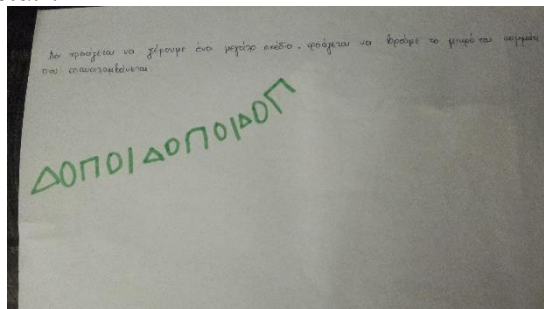 Δεν χρειάζεται να ξέρουμε ένα μεγάλο σχέδιο, χρειάζεται να βρούμε το μικρό του κομμάτι
που επαναλαμβάνεται.
ΔΟΠΟΙΔΟΠΟΙΔΟΠ